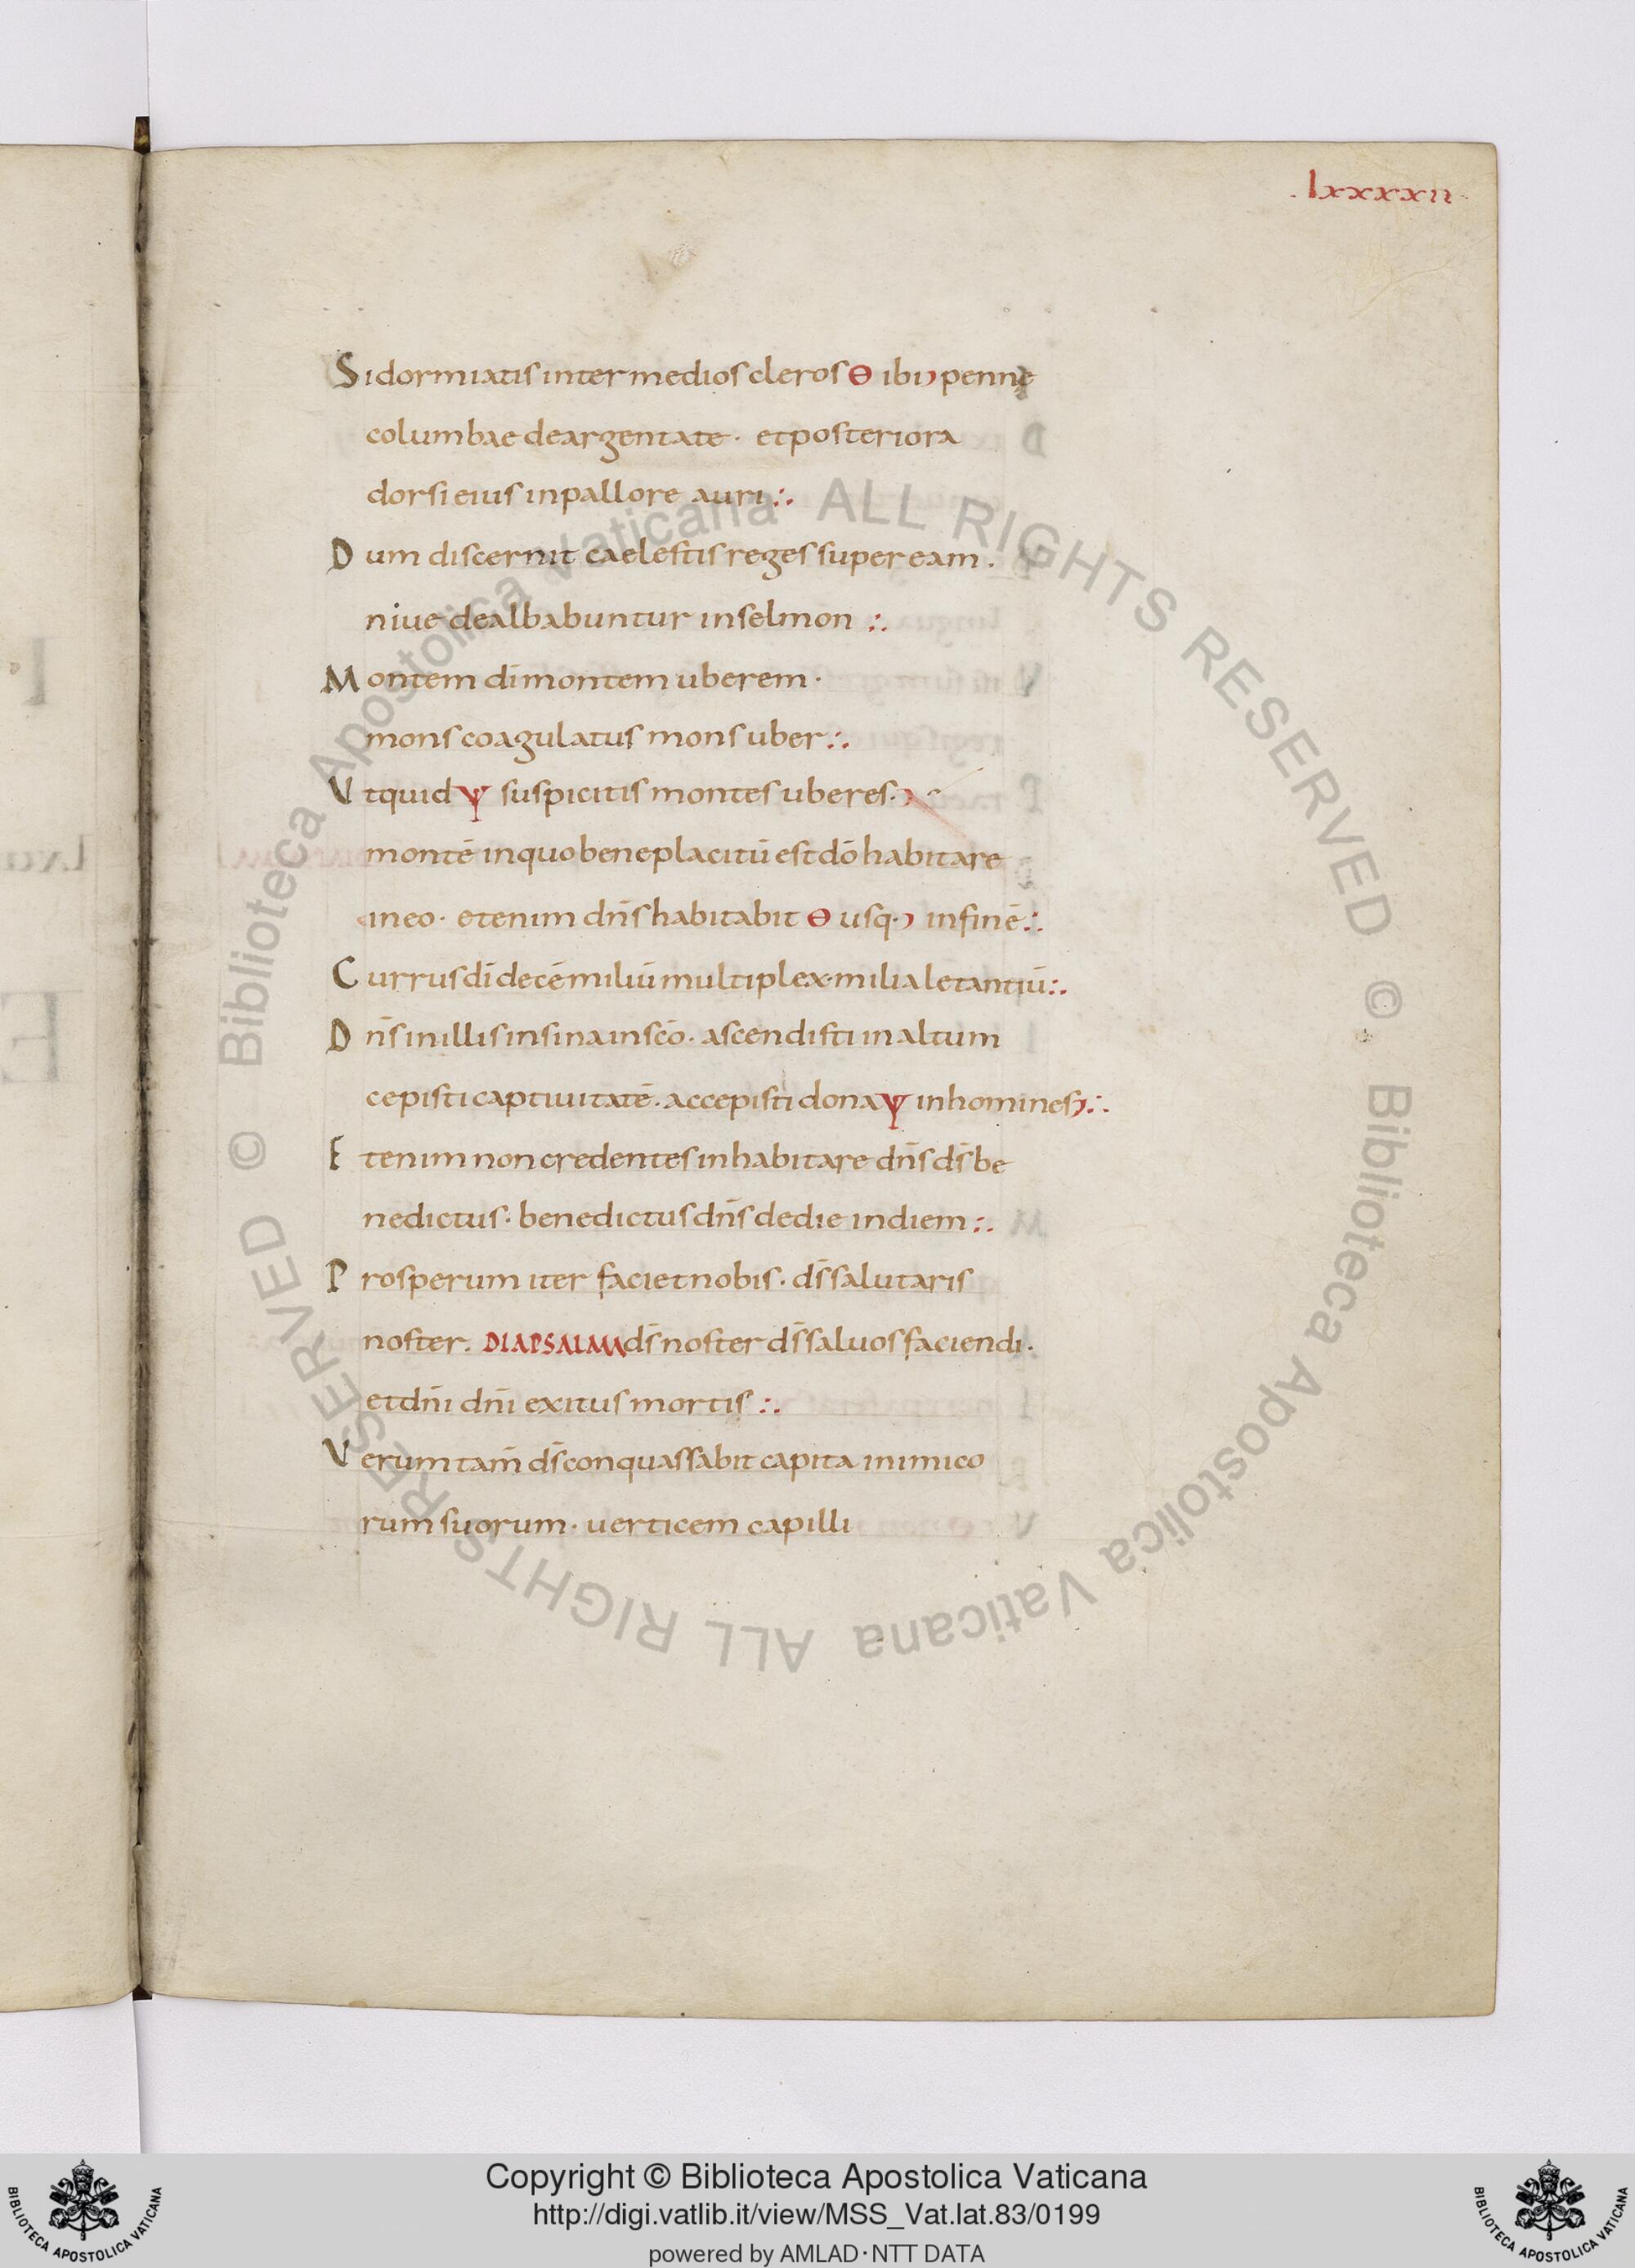 .lxxxxii.
Si dormiatis inter medios cleros Θ ibi pennę
columbae deargentate· et posteriora
dorsi eius in pallore auri :.
Dum discernit caelestis reges super eam.
niue dealbabuntur in selmon :.
Montem dī montem uberem·
mons coagulatus mons uber :.
Vt quid Ψ suspicitis montes uberes·
montē in quo beneplacitū est dō habitare
in eo· etenim dn̄s habitabit Θ usq· in finē :.
Currus dī decē miliū multiplex· milia letantiū :.
Dn̄s in illis in sina in sc̄o· ascendisti in altum
cepisti captiuitatē· accepisti dona Ψ in homines :.
Etenim non credentes inhabitare dn̄s ds̄ be
nedictus· benedictus dn̄s de die in diem :.
Prosperum iter faciet nobis· ds̄ salutaris
noster. DIAPSALMA ds̄ noster ds̄ saluos faciendi·
et dn̄i dn̄i exitus mortis :.
Verumtam̄ ds̄ conquassabit capita inimico
rum suorum· uerticem capilli
© Biblioteca Apostolica Vaticana ALL RIGHTS RESERVED © Biblioteca Apostolica Vaticana ALL RIGHTS RESERVED
Copyright © Biblioteca Apostolica Vaticana
http://digi.vatlib.it/view/MSS_Vat.lat.83/0199
powered by AMLAD·NTT DATA
BIBLIOTECA APOSTOLICA VATICANA
BIBLIOTECA APOSTOLICA VATICANA